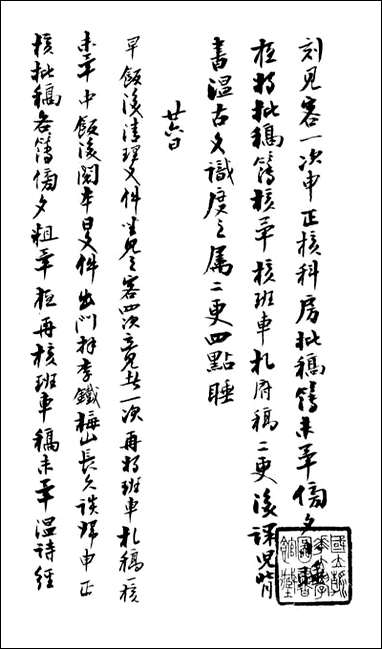 刻見客一次申正核科房批稿簿未畢傍夕
夜將批稿簿核畢核班車札府稿二更後課兒背
書溫古文識度之屬二更四點睡
廿六日
早飯後清理文件坐見之客四次立見者一次再將班車札稿一核
未畢中飯後閱本日文件出門拜李鐵梅山長久談歸申正
核批稿各簿傍夕粗畢夜再核班車稿未畢溫詩經